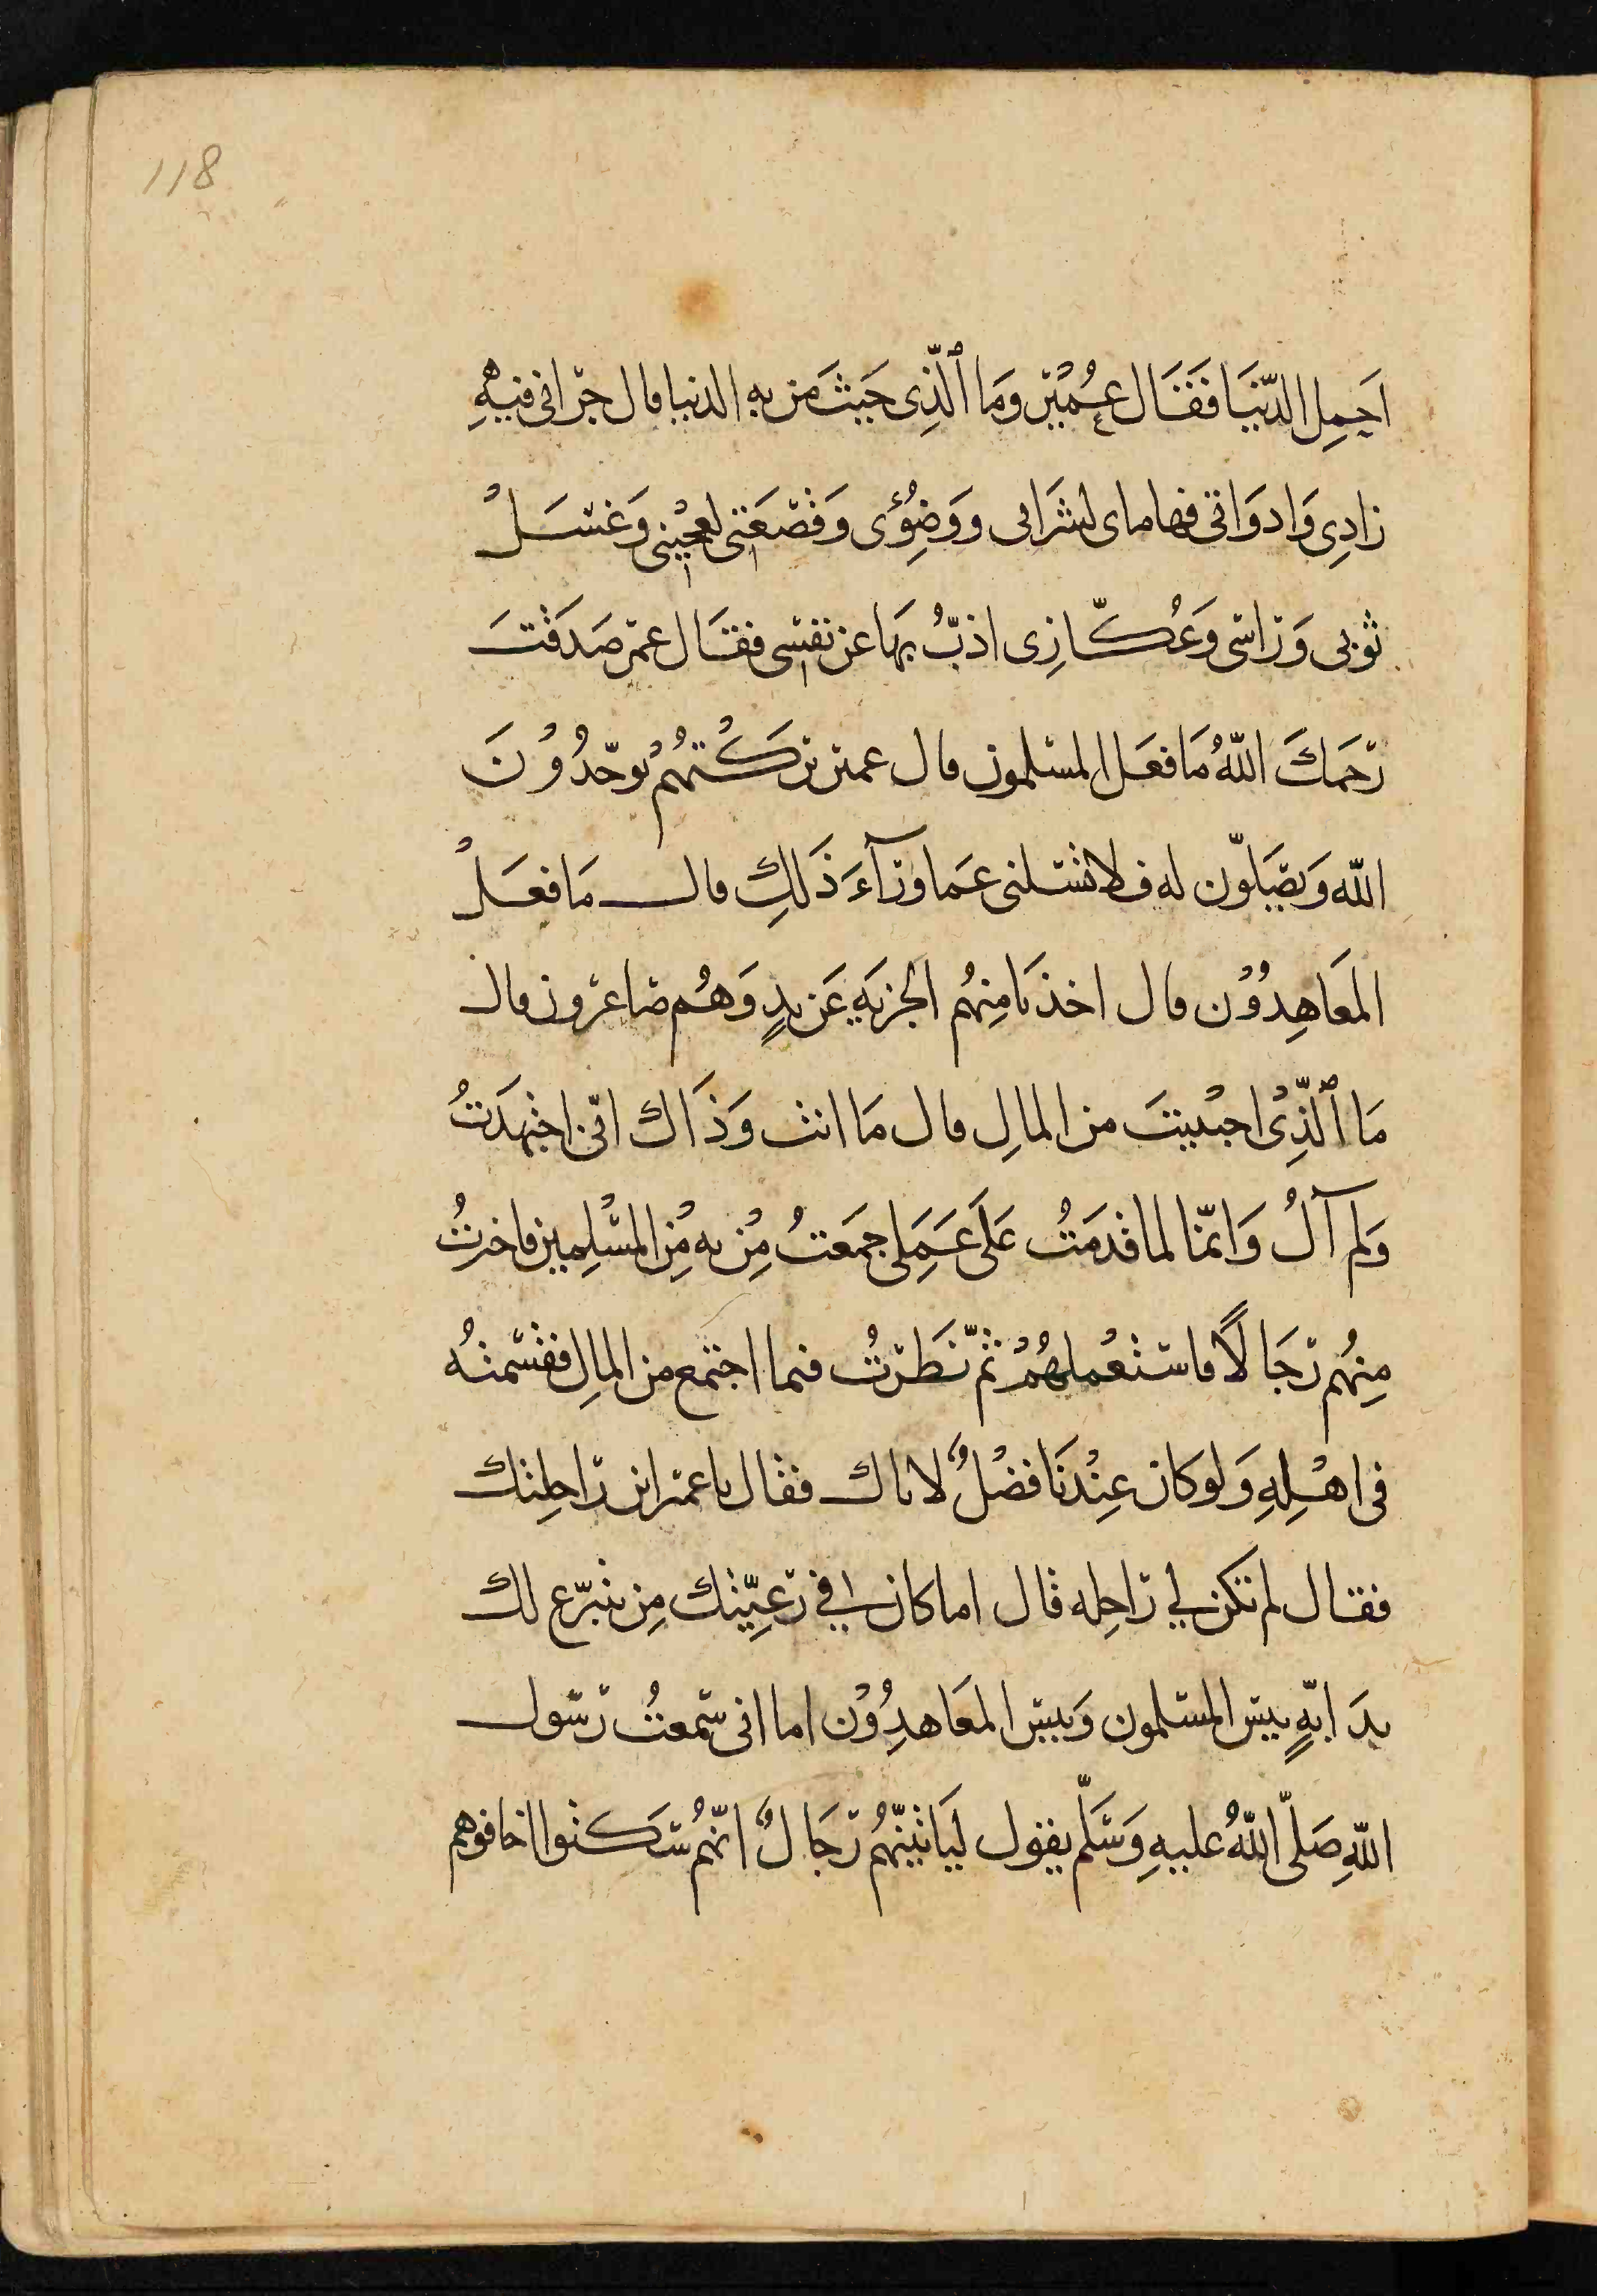 118
اَحمِل الدّنيَا فَقَال عُمَيْر وَمَا ٱلّذِى جَئتَ مَن به الدنيا قال جرابى فيهِ
زادِى وَادوَاتى فيها ماى لشرَابى ووَضُوئى وَقصْعَتى لعجِينى وَغسْلُ
ثوبى وَرَاسى وَعُكّازى اذبُّ بهَا عن نفسى فقال عمر صَدَقْتَ
رَحمَكَ اللّهُ مَا فعَل المسلمون قال عمير تركتُهُمْ يوحّدُوْنَ
اللّه وَيصَلّون له فلا تسئلنى عَما ورآءَ ذَلِكِ قال مَا فعَلْ
المعَاهِدُوْن قال اخذنا مِنهُم الجزيَه عَن يدٍ وَهُم صاغرون قال
مَا ٱلّذِىْ اجبْيتَ من المالِ قال مَا انت وَذَاك انّى اجتهَدتُ
وَلم آلُ وَانّما لما قدَمتُ عَلَى عَمَلِى جمَعتُ مِنْ به مِن المسْلِمين فاخرتُ
مِنهُم رجَالًا فاستعْملهُمْ ثمّ نَظرتُ فيما اجتمع من المالِ فقسّمتُه
فى اهْلِهِ وَلو كان عِنْدنَا فضْلٌ لاتاك فقال ياعمير اين رَاحِلتك
فقال لم تكن لي رَاحِله قال اما كان في رَعِيّتك مِن يتبرّع لك
بدَابةٍ بيس المسلمون وَبيس المعَاهدِوُن اما انى سَمعتُ رَسول
اللّهِ صَلّى اللّهُ عليهِ وَسَلّم يقول ليَاتينّهُم رجَالٌ انّهُم سَكتوا اخافوهم